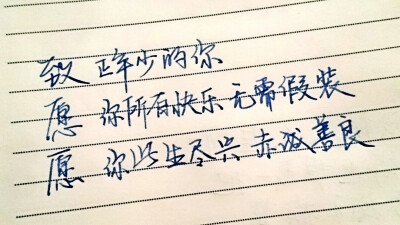 致 正年少的你
愿 你所有快乐 无需假装
愿 你此生尽兴 赤诚善良